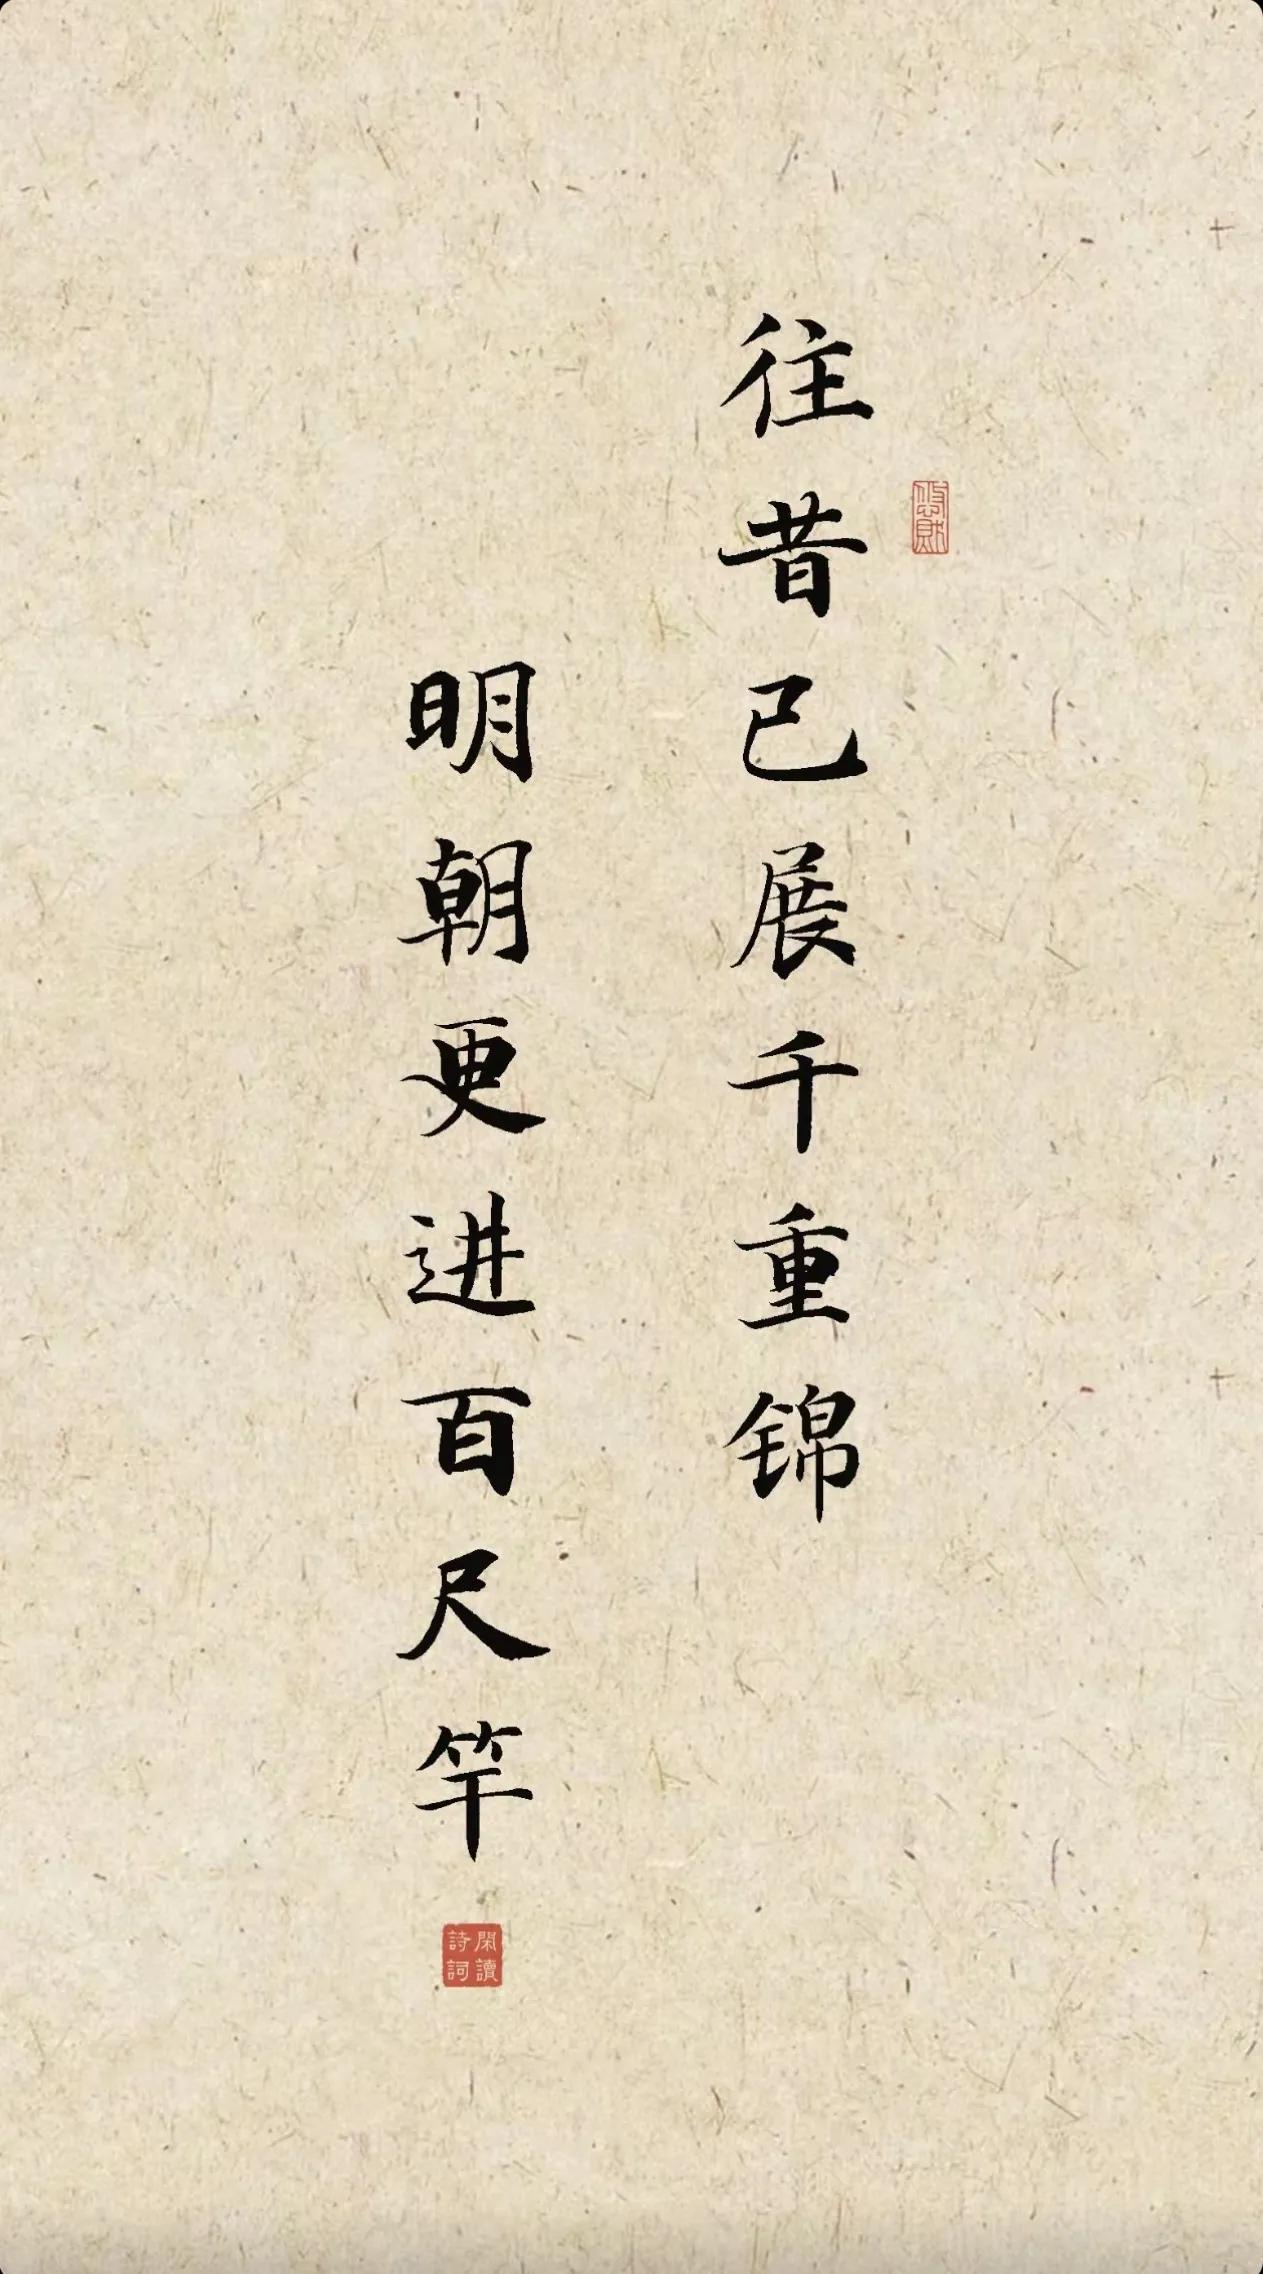 往昔已展千重锦
明朝更进百尺竿
閑讀
詩詞